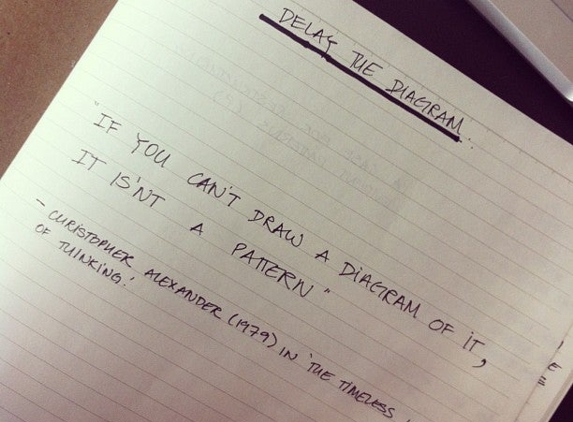 DELAY THE DIAGRAM.
"IF YOU CAN'T DRAW A DIAGRAM OF IT,
IT IS'NT A PATTERN"
- CHRISTOPHER ALEXANDER (1979) IN 'THE TIMELESS
OF THINKING.'